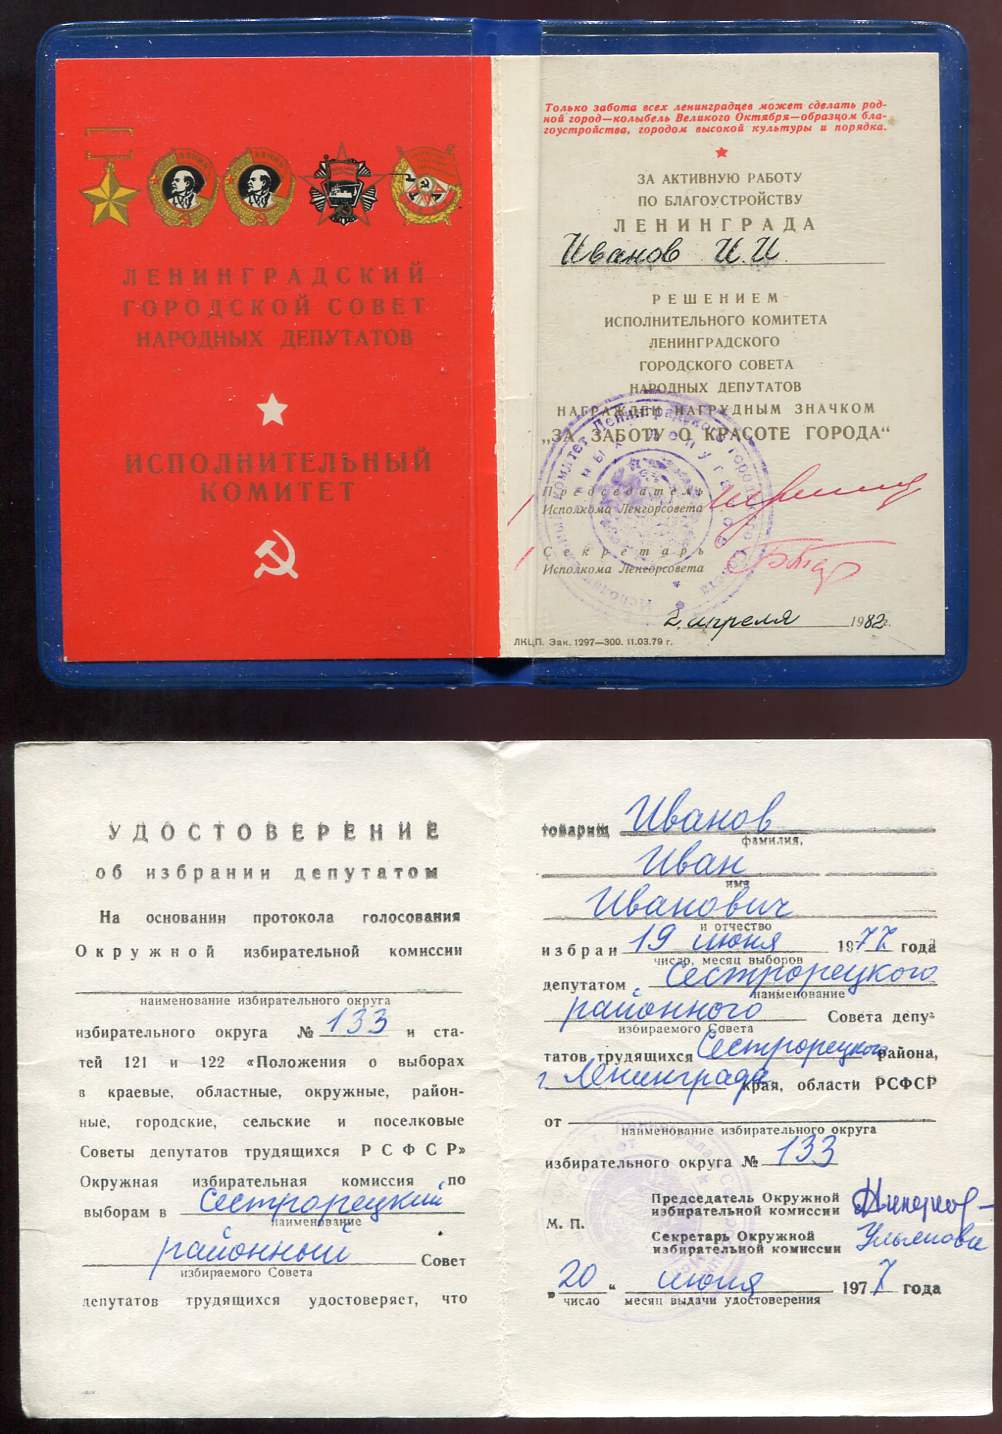 ЛЕНИНГРАДСКИЙ
ГОРОДСКОЙ СОВЕТ
НАРОДНЫХ ДЕПУТАТОВ
ИСПОЛНИТЕЛЬНЫЙ
КОМИТЕТ
Только забота всех ленинградцев может сделать род-
ной город—колыбель Великого Октября—образцом бла-
гоустройства, городом высокой культуры и порядка.
ЗА АКТИВНУЮ РАБОТУ
ПО БЛАГОУСТРОЙСТВУ
ЛЕНИНГРАДА
Иванов И.И.
РЕШЕНИЕМ
ИСПОЛНИТЕЛЬНОГО КОМИТЕТА
ЛЕНИНГРАДСКОГО
ГОРОДСКОГО СОВЕТА
НАРОДНЫХ ДЕПУТАТОВ
НАГРАЖДЕН НАГРУДНЫМ ЗНАЧКОМ
„ЗА ЗАБОТУ О КРАСОТЕ ГОРОДА“
Председатель
Исполкома Ленгорсовета
Секретарь
Исполкома Ленгорсовета
2 апреля 1982г.
ЛКЦП. Зак. 1297—300. 11.03.79 г.
УДОСТОВЕРЕНИЕ
об избрании депутатом
На основании протокола голосования
Окружной избирательной комиссии
наименование избирательного округа
избирательного округа № 133 и ста-
тей 121 и 122 «Положения о выборах
в краевые, областные, окружные, район-
ные, городские, сельские и поселковые
Советы депутатов трудящихся РСФСР»
Окружная избирательная комиссия по
выборам в Сестрорецкий
наименование
районный Совет
избираемого Совета
депутатов трудящихся удостоверяет, что
товарищ Иванов
фамилия,
Иван
имя
Иванович
и отчество
избран 19 июня 1977 года
число, месяц выборов
депутатом Сестрорецкого
наименование
районного Совета депу-
избираемого Совета
татов трудящихся Сестрорецкого района,
г. Ленинграда края, области РСФСР
от
наименование избирательного округа
избирательного округа № 133
Председатель Окружной
избирательной комиссии
М. П.
Секретарь Окружной
избирательной комиссии
„20“ июня 1977 года
число месяц выдачи удостоверения